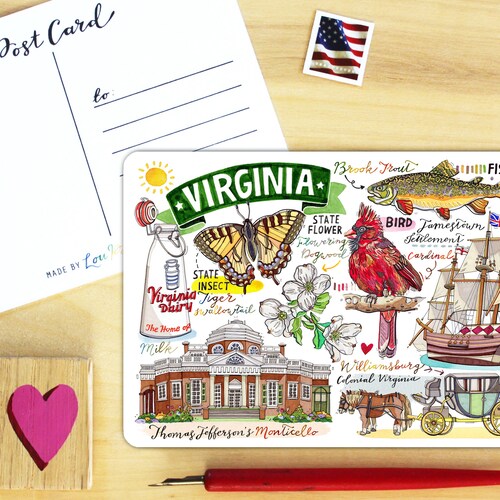 Post Card
to:
MADE BY
VIRGINIA
Brook Trout
STATE
FLOWER
Flowering
Dogwood
BIRD
Jamestown
Settlement
Cardinals
STATE
INSECT
Tiger
Swallowtail
Virginia
Dairy
The Home of
Milk
Williamsburg
Colonial Virginia
Thomas Jefferson's Monticello